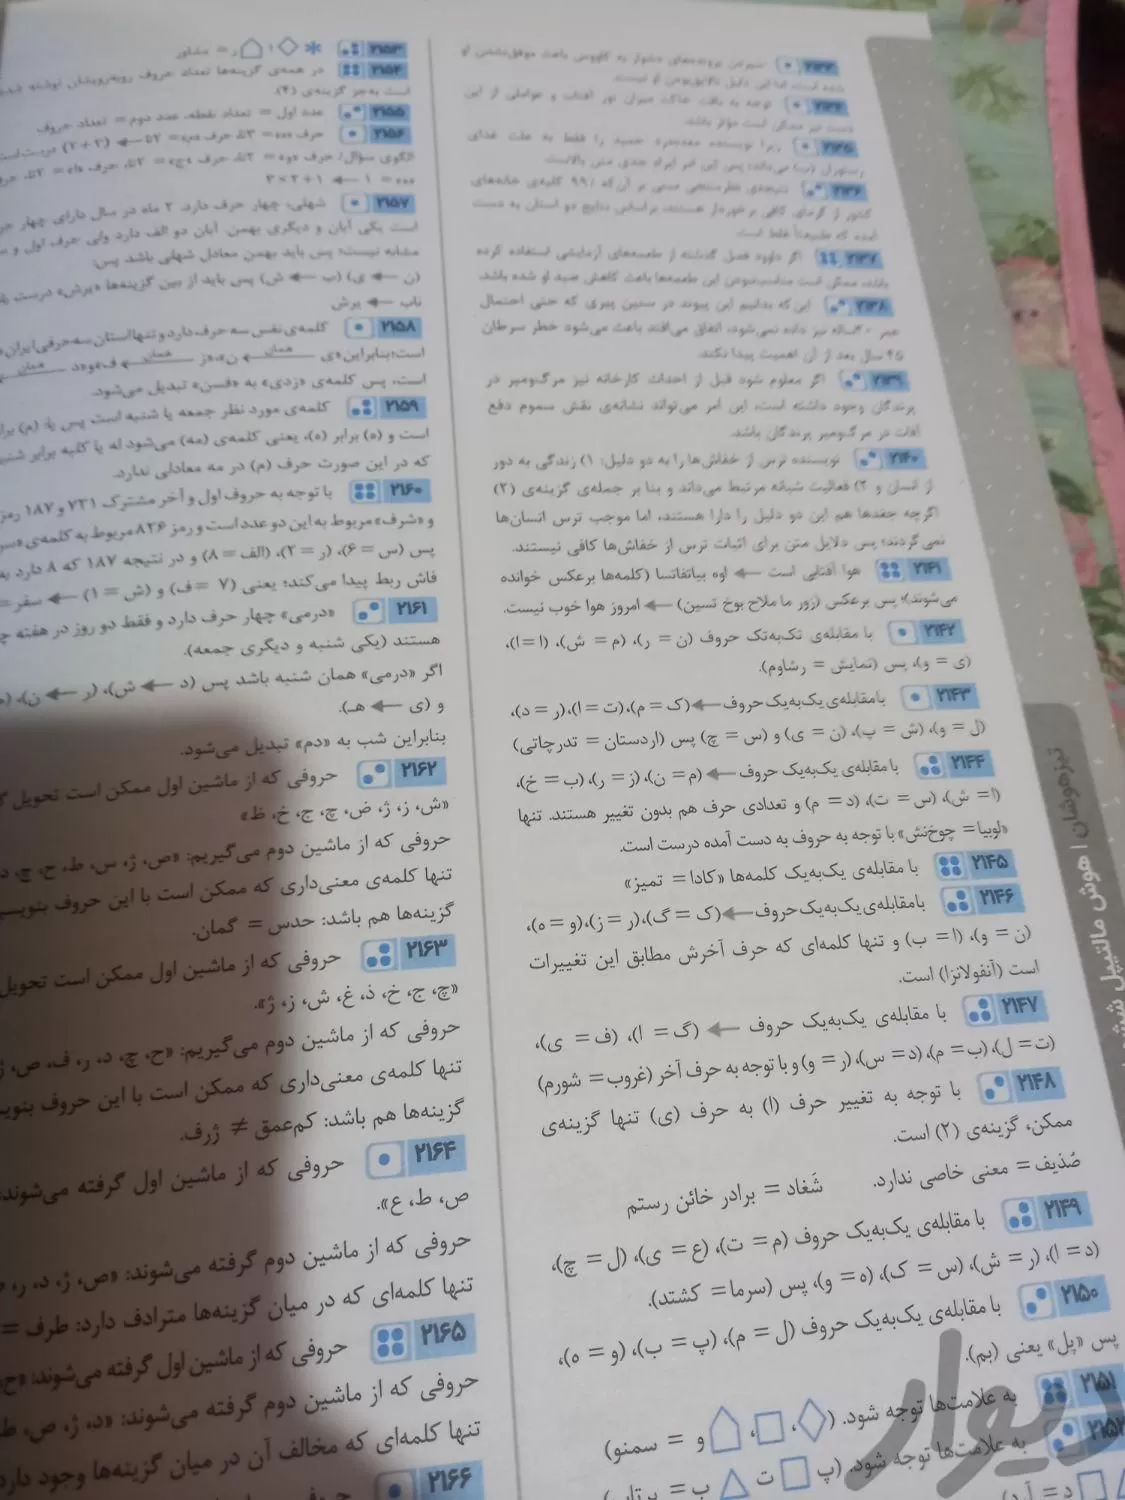 ۲۱۳۳ سپردن پرونده‌های دشوار به کاووس باعث موفق‌نشدن او
شده است، اما این دلیل نالایق‌بودن او نیست.
۲۱۳۴ توجه به بافت خاک، میزان نور آفتاب و عواملی از این
دست نیز ممکن است مؤثر باشد.
۲۱۳۵ زیرا نویسنده معده‌درد حمید را فقط به علت غذای
رستوران (ب) می‌داند؛ پس این امر ایراد جدی متن بالاست.
۲۱۳۶ نتیجه‌ی نظرسنجی مبنی بر آن‌که ۹۹٪ کلیه‌ی خانه‌های
کشور از گرمای کافی برخوردار هستند، براساس نتایج دو استان به دست
آمده که طبیعتاً غلط است.
۲۱۳۷ اگر داوود فصل گذشته از طعمه‌های آزمایشی استفاده کرده
باشد، ممکن است مناسب‌نبودن این طعمه‌ها باعث کاهش صید او شده باشد.
۲۱۳۸ این که بدانیم این پیوند در سنین پیری که حتی احتمال
عمر ۲۰ساله نیز داده نمی‌شود، اتفاق می‌افتد باعث می‌شود خطر سرطان
۴۵ سال بعد از آن اهمیت پیدا نکند.
۲۱۳۹ اگر معلوم شود قبل از احداث کارخانه نیز مرگ‌ومیر در
پرندگان وجود داشته است، این امر می‌تواند نشانه‌ی نقش سموم دفع
آفات در مرگ‌ومیر پرندگان باشد.
۲۱۴۰ نویسنده ترس از خفاش‌ها را به دو دلیل: ۱) زندگی به دور
از انسان و ۲) فعالیت شبانه مرتبط می‌داند و بنا بر جمله‌ی گزینه‌ی (۲)
اگرچه جغدها هم این دو دلیل را دارا هستند، اما موجب ترس انسان‌ها
نمی‌گردند؛ پس دلایل متن برای اثبات ترس از خفاش‌ها کافی نیستند.
۲۱۴۱ هوا آفتابی است ← اوه یباتفآتسا (کلمه‌ها برعکس خوانده
می‌شوند)؛ پس برعکس (زور ما ملاح بوخ تسین) ← امروز هوا خوب نیست.
۲۱۴۲ با مقابله‌ی تک‌به‌تک حروف (ن = ر)، (م = ش)، (ا=ا)،
(ی = و)، پس (نمایش = رشاوم).
۲۱۴۳ با مقابله‌ی یک‌به‌یک حروف ← (ک = م)، (ت = ا)، (ر = د)،
(ل = و)، (ش = پ)، (ن = ی) و (س = چ) پس (اردستان = تدرچاتی)
۲۱۴۴ با مقابله‌ی یک‌به‌یک حروف ← (م = ن)، (ز = ر)، (ب = خ)،
(ا= ش)، (س = ت)، (د = م) و تعدادی حرف هم بدون تغییر هستند. تنها
«لوبیا= چوخ‌نش» با توجه به حروف به دست آمده درست است.
۲۱۴۵ با مقابله‌ی یک‌به‌یک کلمه‌ها «کادا= تمیز»
۲۱۴۶ با مقابله‌ی یک‌به‌یک حروف ← (ک = گ)، (ر = ز)، (و = ه)،
(ن = و)، (ا = ب) و تنها کلمه‌ای که حرف آخرش مطابق این تغییرات
است (آنفولانزا) است.
۲۱۴۷ با مقابله‌ی یک‌به‌یک حروف ← (گ = ا)، (ف = ی)،
(ت= ل)، (ب= م)، (د= س)، (ر = و) و با توجه به حرف آخر (غروب= شورم)
۲۱۴۸ با توجه به تغییر حرف (ا) به حرف (ی) تنها گزینه‌ی
ممکن، گزینه‌ی (۲) است.
صُذیف= معنی خاصی ندارد. شَغاد = برادر خائن رستم
۲۱۴۹ با مقابله‌ی یک‌به‌یک حروف (م = ت)، (ع = ی)، (ل = چ)،
(د= ا)، (ر = ش)، (س = ک)، (ه = و)، پس (سرما= کشتد).
۲۱۵۰ با مقابله‌ی یک‌به‌یک حروف (ل = م)، (پ = ب)، (و = ه)،
پس «پل» یعنی (بم).
۲۱۵۱ به علامت‌ها توجه شود. (و = سمنو)
۲۱۵۲ به علامت‌ها توجه شود. (پ ت ب = پرتاب)
د = آ
۲۱۵۳ ا ر = مشاور
۲۱۵۴ در همه‌ی گزینه‌ها تعداد حروف روبه‌رویشان نوشته شده
است به‌جز گزینه‌ی (۴).
۲۱۵۵ عدد اول = تعداد نقطه، عدد دوم = تعداد حروف
۲۱۵۶ حرف
الگوی سؤال: حرف
۳×۲+۱ ← ۱ =
۲۱۵۷ شهلی، چهار حرف دارد. ۲ ماه در سال دارای چهار
است یکی آبان و دیگری بهمن. آبان دو الف دارد ولی حرف اول و
مشابه نیست؛ پس باید بهمن معادل شهلی باشد پس:
(ن ← ی) (ب ← ش) پس باید از بین گزینه‌ها «یرش» درست
ناب ← یرش
۲۱۵۸ کلمه‌ی نفس سه حرف دارد و تنها استان سه‌حرفی ایران
است؛ بنابراین «ی همان ن»، «ز همان ف» و «د همان
است، پس کلمه‌ی «زدی» به «فسن» تبدیل می‌شود.
۲۱۵۹ کلمه‌ی مورد نظر جمعه یا شنبه است. پس یا: (م)
است و (ه) برابر (ه)، یعنی کلمه‌ی (مه) می‌شود له یا کلبه برابر
که در این صورت حرف (م) در مه معادلی ندارد.
۲۱۶۰ با توجه به حروف اول و آخر مشترک ۷۳۱ و ۱۸۷ رمز
و «شرف» مربوط به این دو عدد است و رمز ۸۲۶ مربوط به کلمه‌ی
پس (س = ۶)، (ر = ۲)، (الف = ۸) و در نتیجه ۱۸۷ که ۸ دارد به
فاش ربط پیدا می‌کند؛ یعنی (۷ =ف) و (ش = ۱) ← سفر =
۲۱۶۱ «درمی» چهار حرف دارد و فقط دو روز در هفته
هستند (یکی شنبه و دیگری جمعه).
اگر «درمی» همان شنبه باشد پس (د ← ش)، (ر ← ن)،
و (ی ← هـ).
بنابراین شب به «دم» تبدیل می‌شود.
۲۱۶۲ حروفی که از ماشین اول ممکن است تحویل
«ش، ز، ژ، ض، چ، ج، خ، ظ»
حروفی که از ماشین دوم می‌گیریم: «ص، ژ، س، ط، ح، چ، د
تنها کلمه‌ی معنی‌داری که ممکن است با این حروف
گزینه‌ها هم باشد: حدس = گمان.
۲۱۶۳ حروفی که از ماشین اول ممکن است تحویل
«چ، ج، خ، ذ، غ، ش، ز، ژ».
حروفی که از ماشین دوم می‌گیریم: «ح، چ، د، ر، ف، ص،
تنها کلمه‌ی معنی‌داری که ممکن است با این حروف
گزینه‌ها هم باشد: کم‌عمق ≠ ژرف.
۲۱۶۴ حروفی که از ماشین اول گرفته می‌شوند
ص، ط، ع».
حروفی که از ماشین دوم گرفته می‌شوند: «ص، ژ، د، ر،
تنها کلمه‌ای که در میان گزینه‌ها مترادف دارد: طرف =
۲۱۶۵ حروفی که از ماشین اول گرفته می‌شوند: «ح،
حروفی که از ماشین دوم گرفته می‌شوند: «د، ژ، ص، ط
تنها کلمه‌ای که مخالف آن در میان گزینه‌ها وجود دارد
۲۱۶۶ حروفی که از ماشین
تیزهوشان | هوش مالتیپل ششم
دیوار